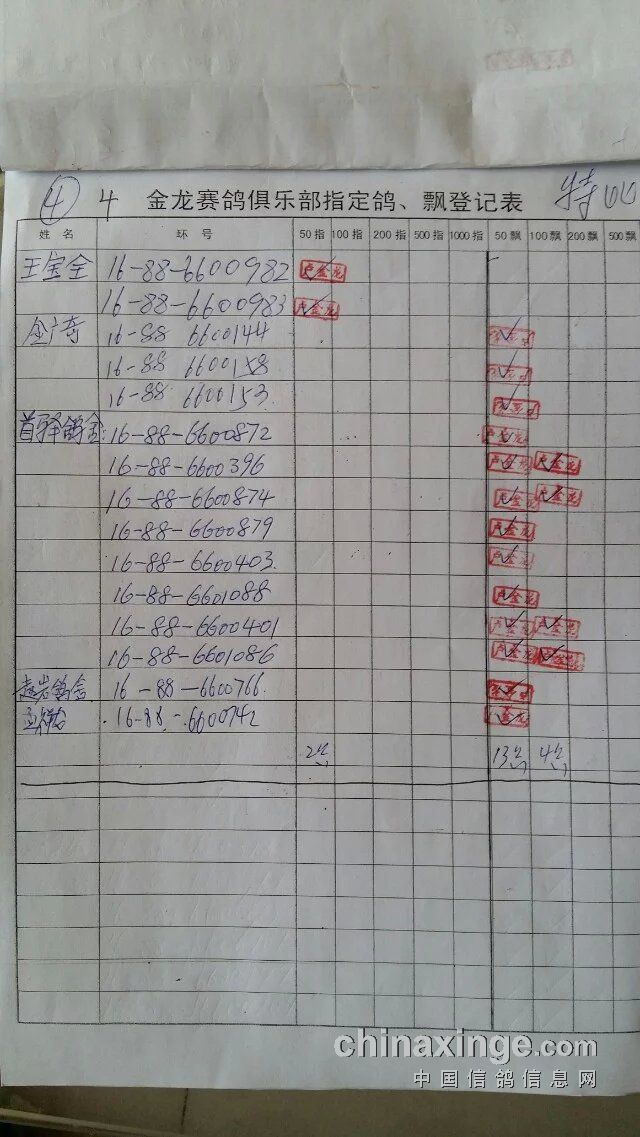 ④ 4 金龙赛鸽俱乐部指定鸽、飘登记表 特
姓名 环号 50指 100指 200指 500指 1000指 50飘 100飘 200飘 500飘
王宝全 16-88-6600982 卢金龙
16-88-6600983 卢金龙
16-88 6600144
16-88 6600158
16-88 6600153
首驿鸽舍 16-88-6600872
16-88-6600396 卢金龙 卢金龙
16-88-6600874 卢金龙 卢金龙
16-88-6600879 卢金龙
16-88-6600403 卢金龙
16-88-6601088 卢金龙
16-88-6600401 卢金龙 卢金龙
16-88-6601086 卢金龙 卢金龙
赵岩鸽舍 16-88-6600766
16-88-6600742
2 13 4
chinaxinge.com
中国信鸽信息网